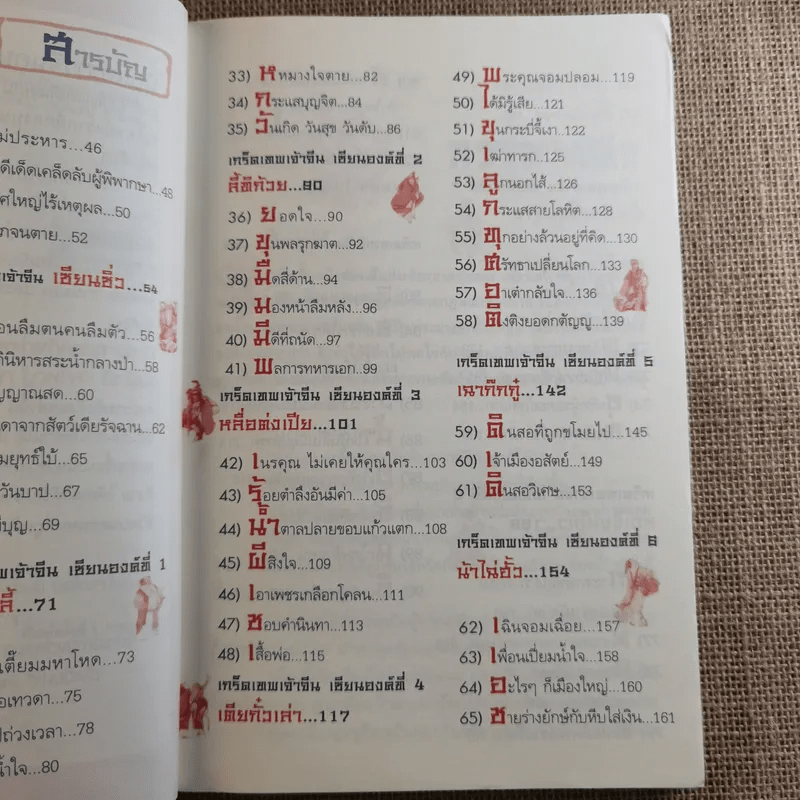 สารบัญ
ประหาร...46
ดีเด็ดเคล็ดลับผู้พิพากษา...48
ใหญ่ไร้เหตุผล...50
จนตาย...52
เจ้าจีน เซียนซิ่ว...54
ลืมตนคนลืมตัว...56
นิหารสระน้ำกลางป่า...58
ญญาณสด...60
ดาจากสัตว์เดียรัจฉาน...62
มยุทธ์ใบ้...65
วันบาป...67
บุญ...69
เทพเจ้าจีน เซียนองค์ที่ 1
...71
เตี๊ยมมหาโหด...73
เทวดา...75
ถ่วงเวลา...78
น้ำใจ...80
33) หหมางใจตาย...82
34) กระแสบุญจิต...84
35) วันเกิด วันสุข วันดับ...86
เกร็ดเทพเจ้าจีน เซียนองค์ที่ 2
ลี้ทิก้วย...90
36) ยอดใจ...90
37) ขุนพลรุกฆาต...92
38) มืดสี่ด้าน...94
39) มองหน้าลืมหลัง...96
40) มีดีที่ถนัด...97
41) พลการทหารเอก...99
เกร็ดเทพเจ้าจีน เซียนองค์ที่ 3
หลื่อต่งเปีย...101
42) เนรคุณ ไม่เคยให้คุณใคร...103
43) ร้อยตำลึงอันมีค่า...105
44) น้ำตาลปลายขอบแก้วแตก...108
45) ผีสิงใจ...109
46) เอาเพชรเกลือกโคลน...111
47) ชอบคำนินทา...113
48) เสื้อพ่อ...115
เกร็ดเทพเจ้าจีน เซียนองค์ที่ 4
เตียกั๋วเล่า...117
49) พระคุณจอมปลอม...119
50) ได้มิรู้เสีย...121
51) ขุนกระบี่จี้เงา...122
52) เฒ่าทารก...125
53) ลูกนอกไส้...126
54) กระแสสายโลหิต...128
55) ทุกอย่างล้วนอยู่ที่คิด...130
56) ศรัทธาเปลี่ยนโลก...133
57) อาเต๋ากลับใจ...136
58) ติงติงยอดกตัญญู...139
เกร็ดเทพเจ้าจีน เซียนองค์ที่ 5
เฉาก๊กกู๋...142
59) ดินสอที่ถูกขโมยไป...145
60) เจ้าเมืองอสัตย์...149
61) ดินสอวิเศษ...153
เกร็ดเทพเจ้าจีน เซียนองค์ที่ 6
น้าไฉ่ฮั้ว...154
62) เฉินจอมเฉื่อย...157
63) เพื่อนเปี่ยมน้ำใจ...158
64) อะไรๆ ก็เมืองใหญ่...160
65) ชายร่างยักษ์กับหีบใส่เงิน...161